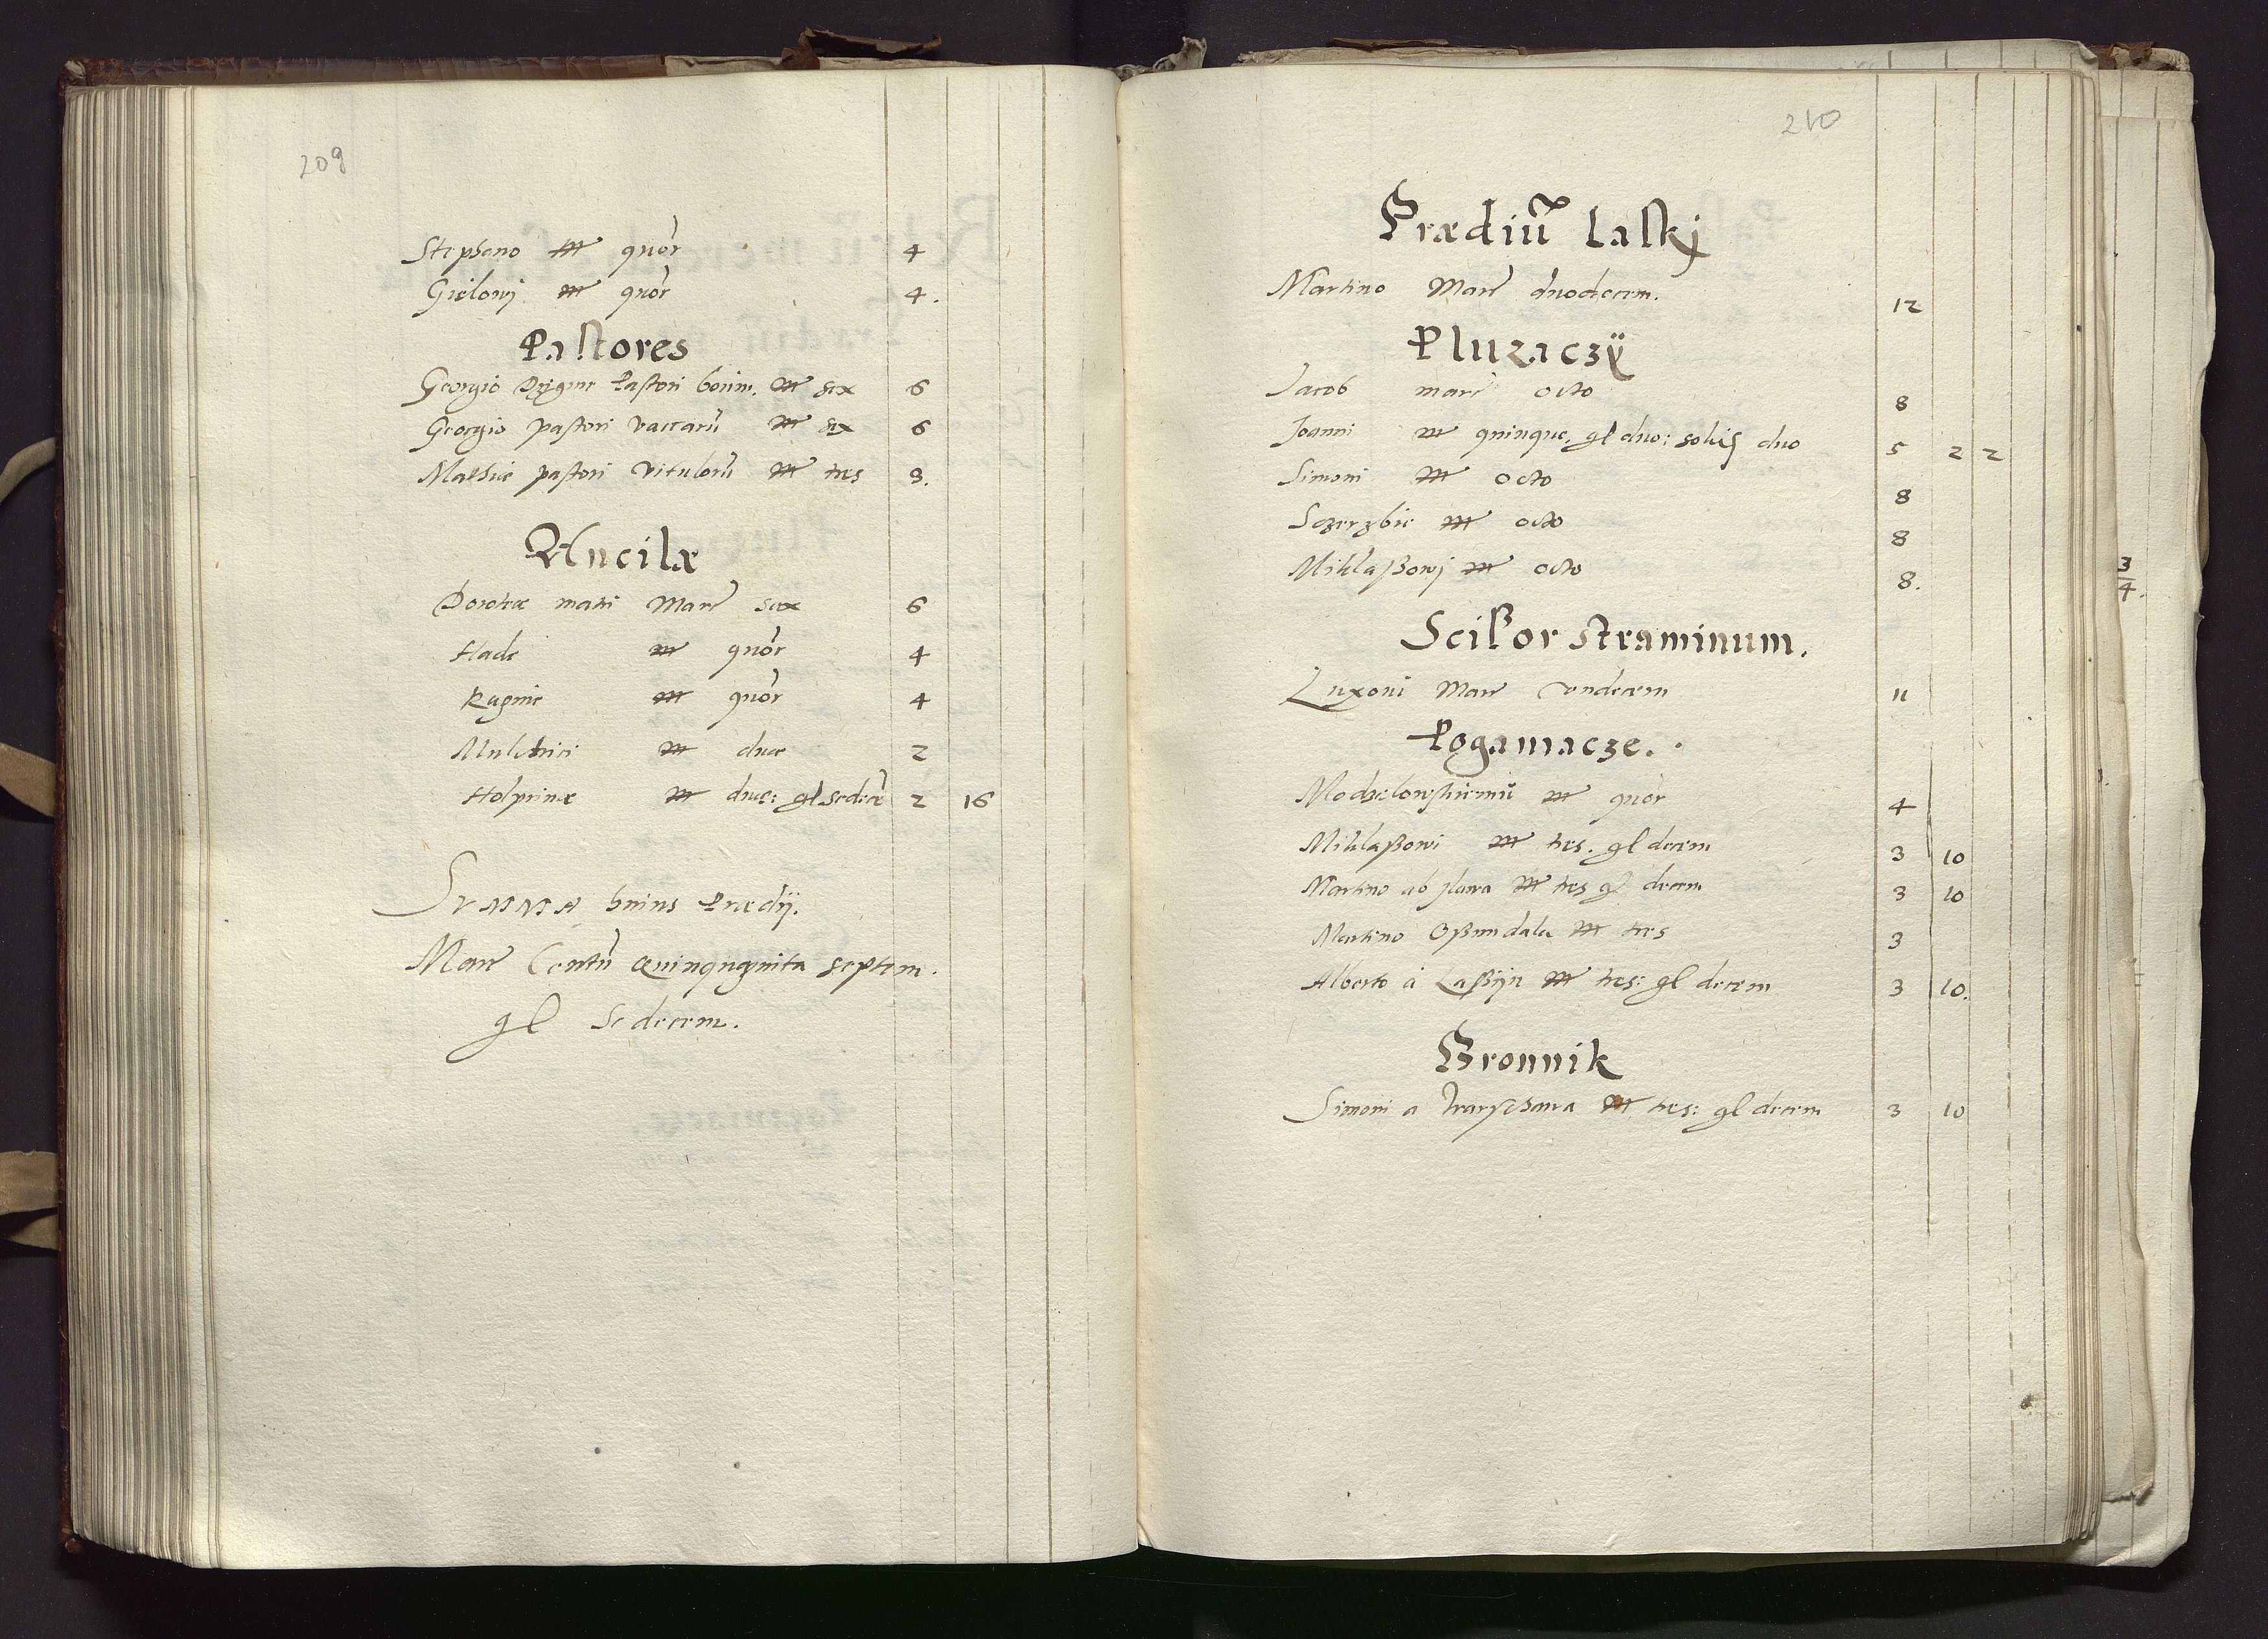 209
Stephano m̶ quõr 4
Gielowj m̶ quõr 4.
Pastores
Georgio Pastori boũm. m̶ sex 6
Georgio pastori vaccarũ m̶ sex 6
Mathie pastori vitulorũ m̶ tres 3.
Ancilæ
Dorotheæ matri Marc sex 6
Hade m̶ quõr 4
Ragnie m̶ quõr 4
Mulctrici m̶ duæ 2
Holprinæ m̶ duæ: gl sedecẽ 2 16
SVMMA huius Prædij.
Marc Centũ Quinquginta septem.
gl Sedecem.
210
Prædiũ Laskj
Martino Marc duodecem. 12
Pluzaczÿ
Jacob marc octo 8
Joanni m̶ quinque, gl duo: solis duo 5 2 2
Simoni m̶ octo 8
Sczerzbie m̶ octo 8
Miklaßowj m̶ octo 8.
Scißor straminum.
Luxoni Marc vndecem 11
Poganiacze.
Modzelowskiemŭ m̶ quõr 4
Miklaßowi m̶ tres. gl decem 3 10
Martino ab Ilawa m̶ tres gl decem 3 10
Martino Oßundala m̶ tres 3
Alberto à Laßÿn m̶ tres: gl decem 3 10.
Bronnik
Simoni a Warschawa m̶ tres: gl decem 3 10
3
4.